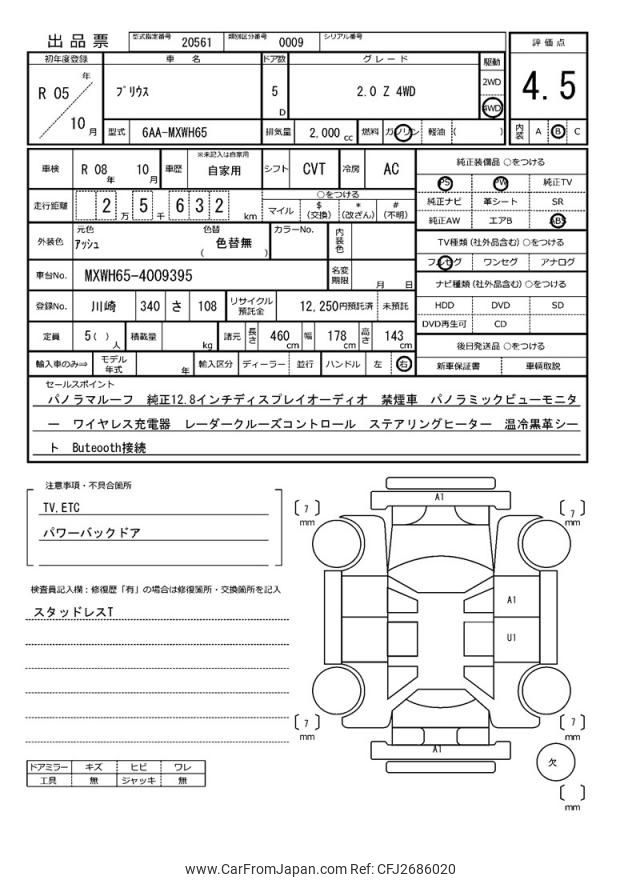 出品票 型式指定番号 20561 類別区分番号 0009 シリアル番号
評価点
4.5
内装 A B C
初年度登録 車名 ドア数 グレード 駆動
R 05 年 10 月 ﾌﾟﾘｳｽ 5 D 2.0 Z 4WD 2WD 4WD
型式 6AA-MXWH65 排気量 2,000 cc 燃料 ガソリン 軽油 ( )
車検 R 08 年 10 月 車歴 ※未記入は自家用 自家用 シフト CVT 冷房 AC
走行距離 2 万 5 千 6 3 2 km ○をつける マイル $ (交換) * (改ざん) # (不明)
外装色 元色 ｱｯｼｭ 色替 色替無 ( ) カラーNo. 内装色
車台No. MXWH65-4009395 名変期限 月 日
登録No. 川崎 340 さ 108 リサイクル預託金 12,250円預託済 未預託
定員 5( ) 人 積載量 kg 諸元 長さ 460 cm 幅 178 cm 高さ 143 cm
輸入車のみ⇒ モデル年式 年 輸入区分 ディーラー 並行 ハンドル 左 右
純正装備品 ○をつける
PS PW 純正TV
純正ナビ 革シート SR
純正AW エアB ABS
TV種類 (社外品含む) ○をつける
フルセグ ワンセグ アナログ
ナビ種類 (社外品含む) ○をつける
HDD DVD SD
DVD再生可 CD
後日発送品 ○をつける
新車保証書 車輌取説
セールスポイント
パノラマルーフ 純正12.8インチディスプレイオーディオ 禁煙車 パノラミックビューモニタ
ー ワイヤレス充電器 レーダークルーズコントロール ステアリングヒーター 温冷黒革シー
ト Buteooth接続
注意事項・不具合箇所
TV.ETC
パワーバックドア
検査員記入欄：修復歴「有」の場合は修復箇所・交換箇所を記入
スタッドレスT
ドアミラー キズ ヒビ ワレ
工具 無 ジャッキ 無
A1
[ 7 ] mm
[ 7 ] mm
A1
U1
[ 7 ] mm
[ 7 ] mm
A1
欠
[ ] mm
www.CarFromJapan.com Ref: CFJ2686020